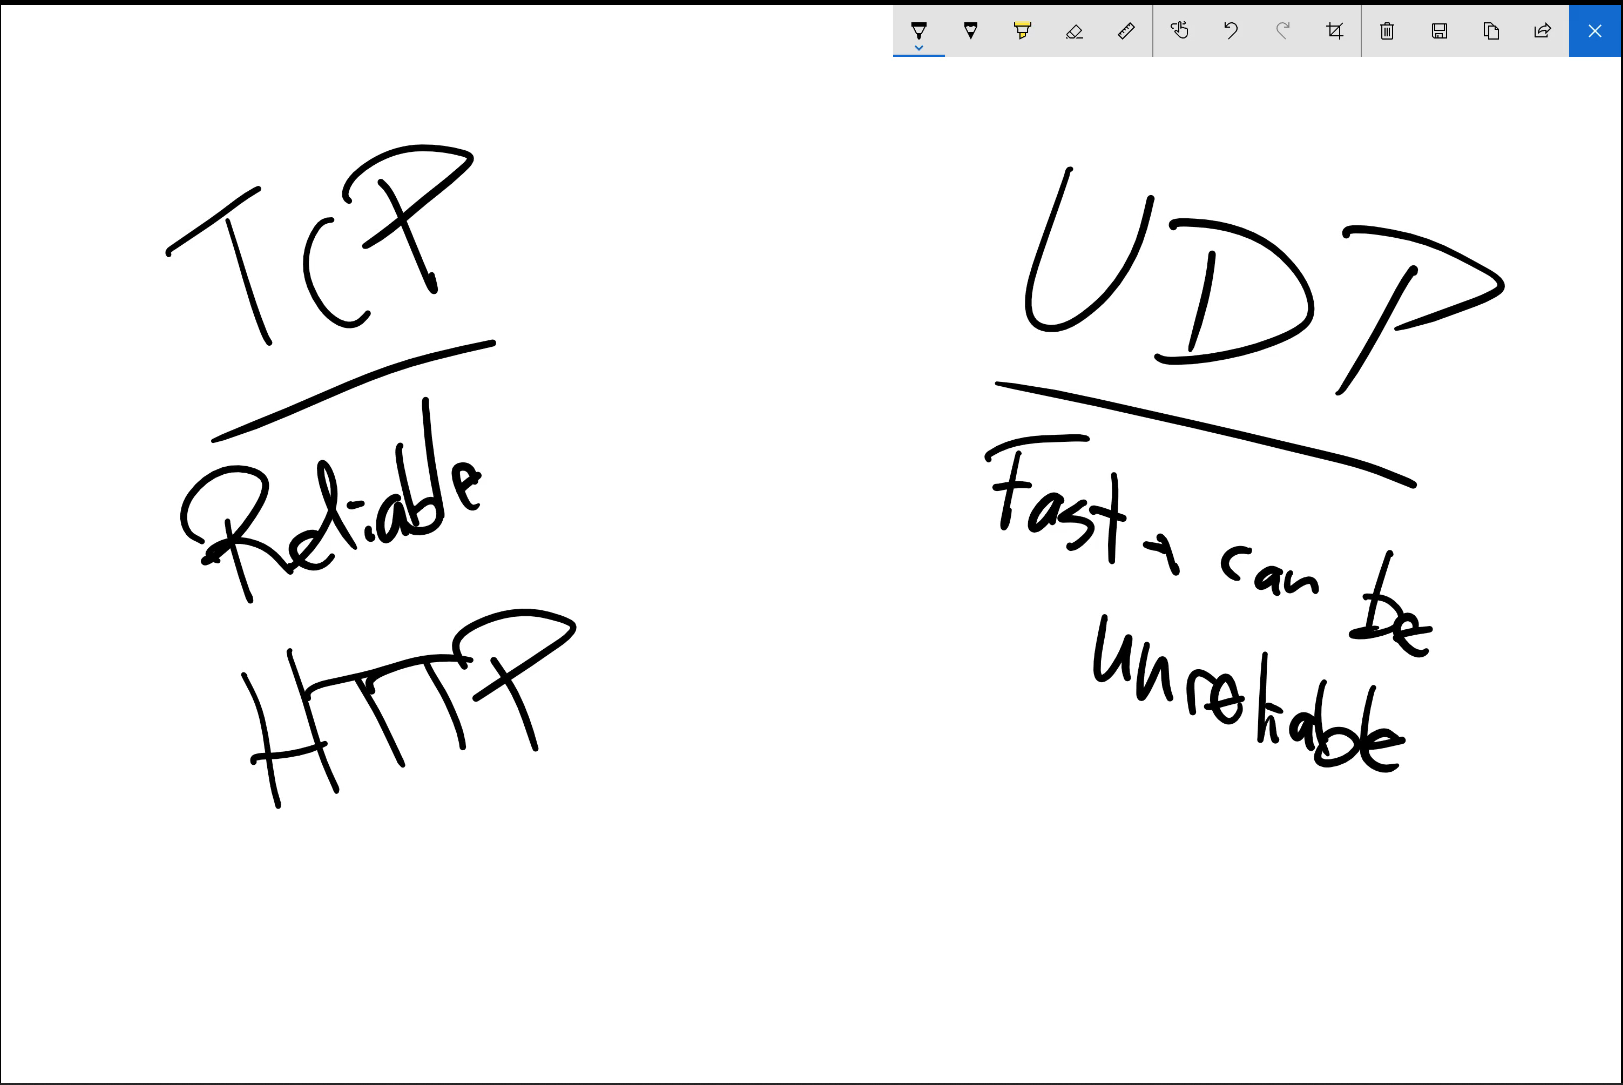 TCP
Reliable
HTTP
UDP
Fast, can be
unreliable